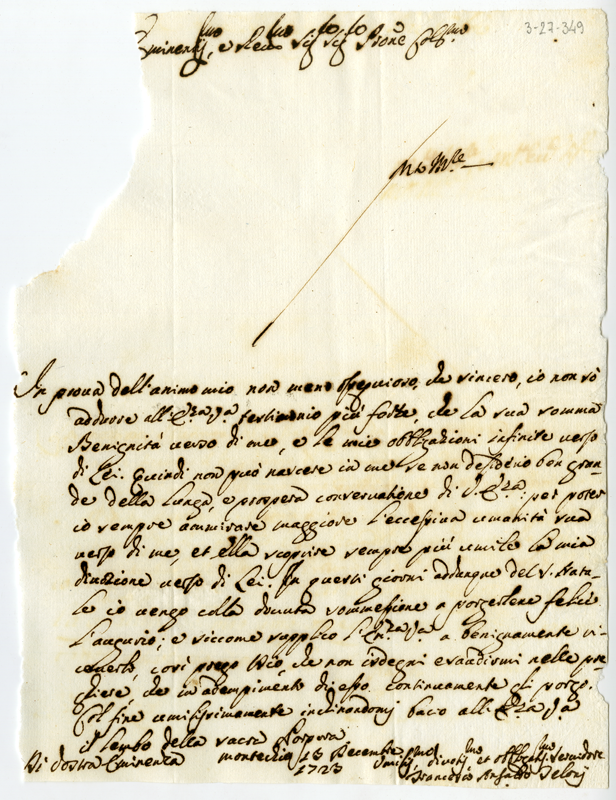 3-27-349
Eminen.mo, e Re.mo Sig.r Sig.r Prone Col.mo
In prova dell'animo mio non meno ossequioso, che sincero, io non sò
addurre all'E.za V.a testimonio più forte, che la sua somma
Benignità verso di me, e le mie obbligazioni infinite verso
di Lei. Quindi non può nascere in me se non desiderio ben gran-
de della lunga, e prospera conservatione di V. E.za: per poter
io sempre ammirare maggiore l'eccessiva umanità sua
verso di me, et ella scoprire sempre più umile la mia
divozione verso di Lei. In questi giorni addunque del S. Nata-
le io vengo colla dovuta sommessione a porgerlene felice
l'augurio; e siccome supplico l'E.za V.a a benignamente ri-
ceverlo, così prego Iddio, che non isdegni esaudirmi nelle pre-
ghiere, che in adempimento di esso continuamente gli porgo.
Col fine umilissimamente inchinandomi bacio all'E.za V.a
il lembo della sacra Porpora.
Di Vostra Eminenza montecchio 18 Decembre
1723 Umil.mo divot.mo et obbligat.mo Servidore
Francesco